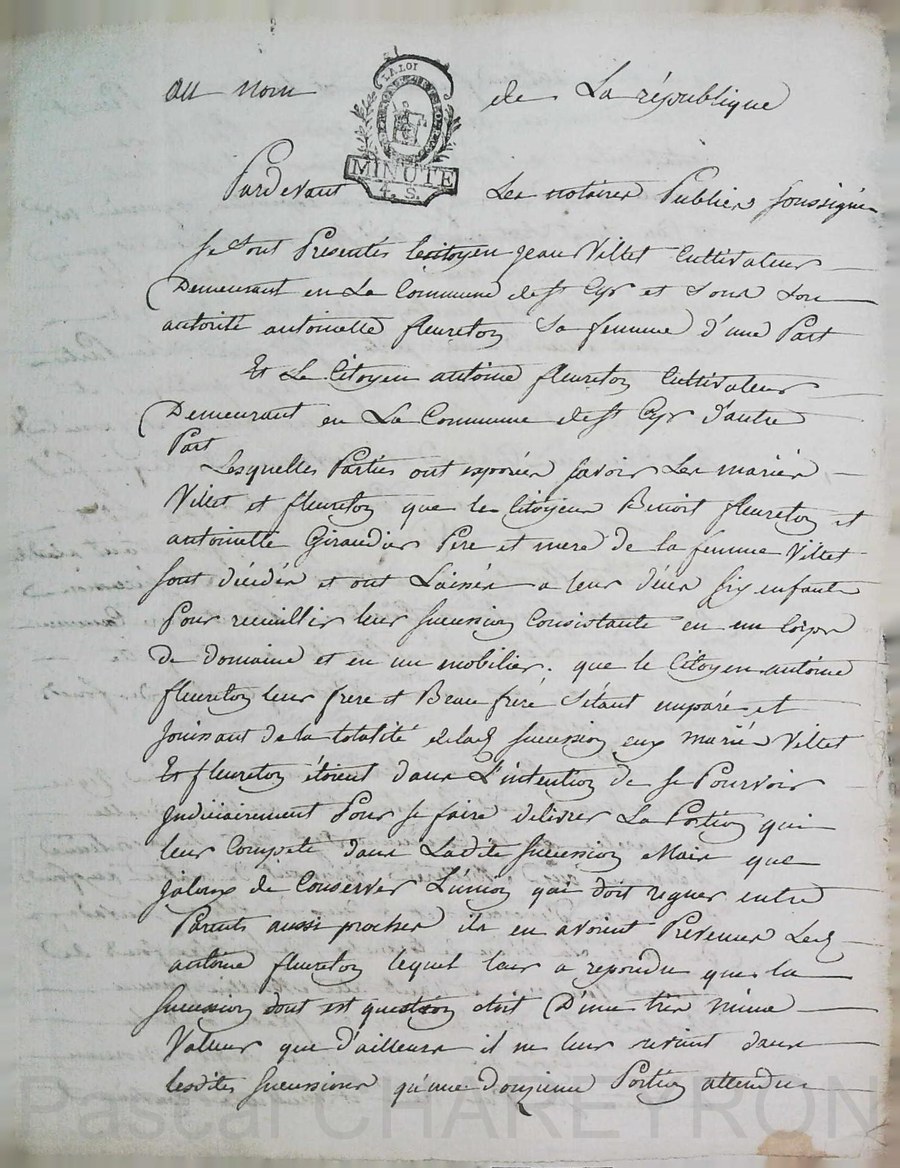 au nom de La république
LA LOI
MINUTE
4. S.
Pardevant Les notaires Publics soussignés
se sont Presentés le citoyen jean Villet Cultivateur
Demeurant en La Commune de St Cyr et sous son
autorité antoinette fleureton sa femme d'une Part
Et Le Citoyen antoine fleureton Cultivateur
Demeurant en La Commune de St Cyr d'autre
Part
Lesquelles Parties ont exposées savoir Les mariés
Villet et fleureton que le Citoyen Benoit fleureton et
antoinette Giraudier Pere et mere de la femme Villet
sont décédés et ont Laissés a leur décès six enfants
Pour recueillir leur succession Consistante en un Corps
de domaine et en un mobilier. que le Citoyen antoine
fleureton leur frere et Beau frere s'étant emparé et
jouissant de la totalité de lad succession eux mariés Villet
Et fleureton étoient dans L'intention de se Pourvoir
judiciairement Pour se faire délivrer La Portion qui
leur Compete dans Ladite succession Mais que
jaloux de Conserver L'union qui doit regner entre
Parents aussi proches ils en avoient Prévenus Led
antoine fleureton lequel leur a repondu que la
succession dont est question etoit D'une tres mince
Valeur que d'ailleurs il ne leur revient dans
lesdites successions qu'une Douzieme Portion attendu
Pascal CHAREYRON